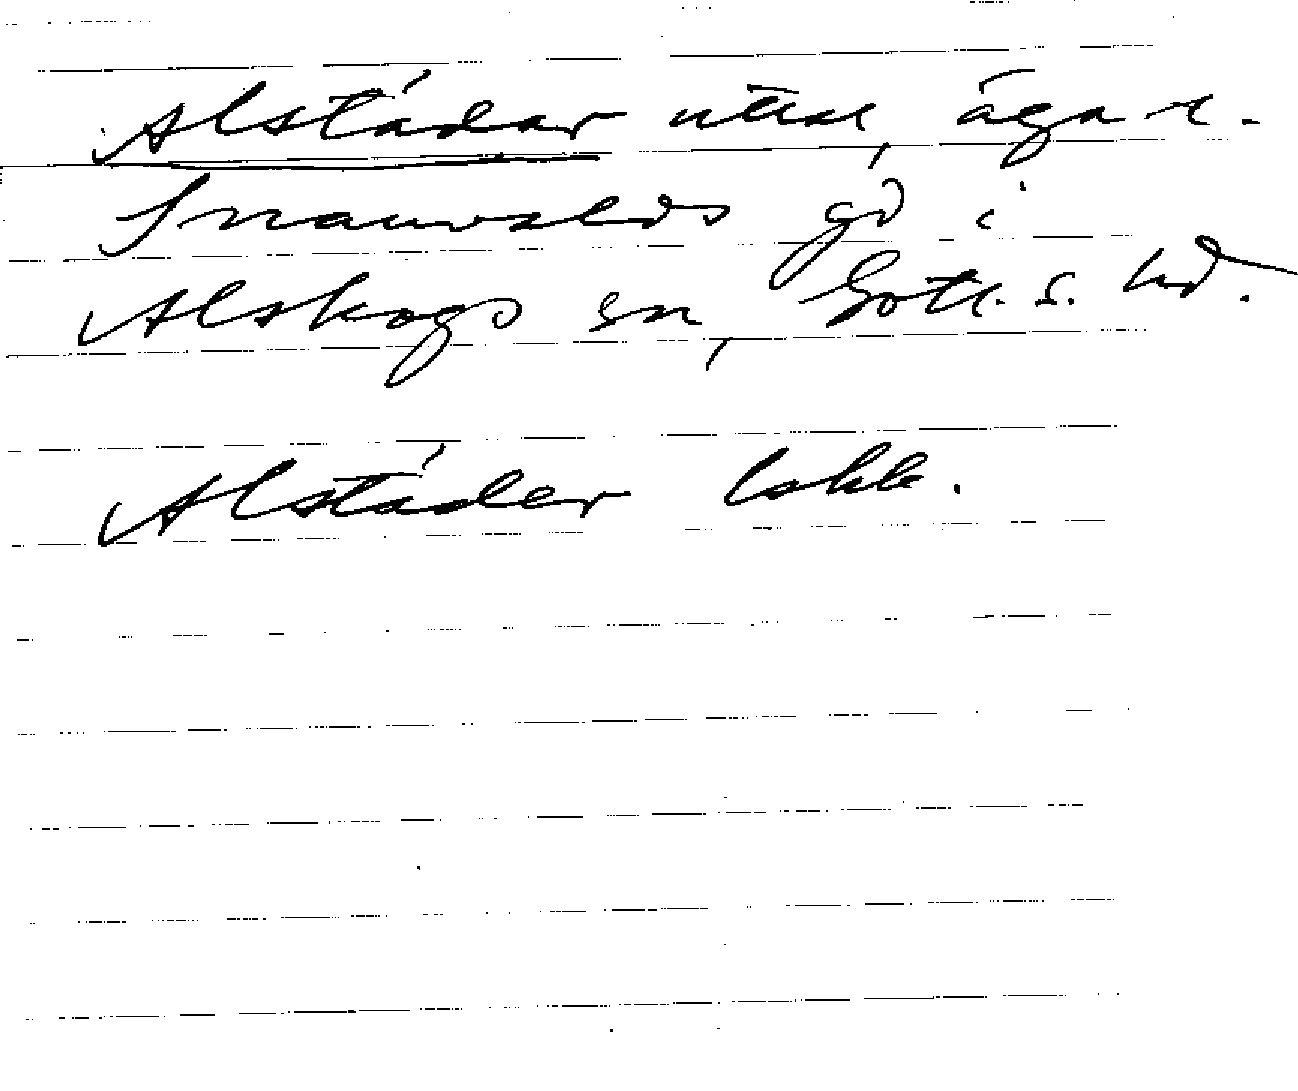 Alstádar uttal, ägor t.
Snauvalds gd i
Alskogs sn, Gotl. s. hd.
Alstáder lokk.